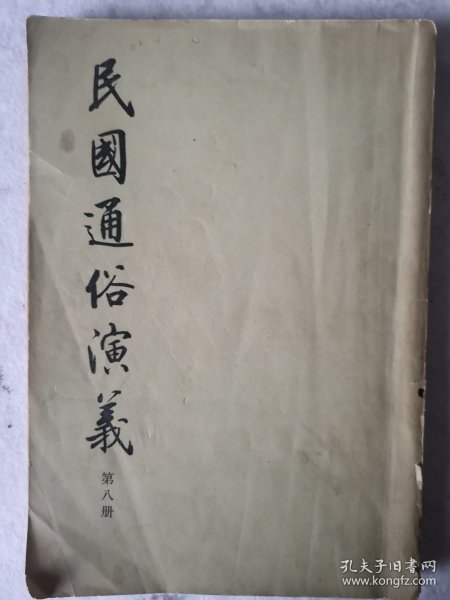 民國通俗演義
第八册
孔夫子旧书网
www.kongfz.com